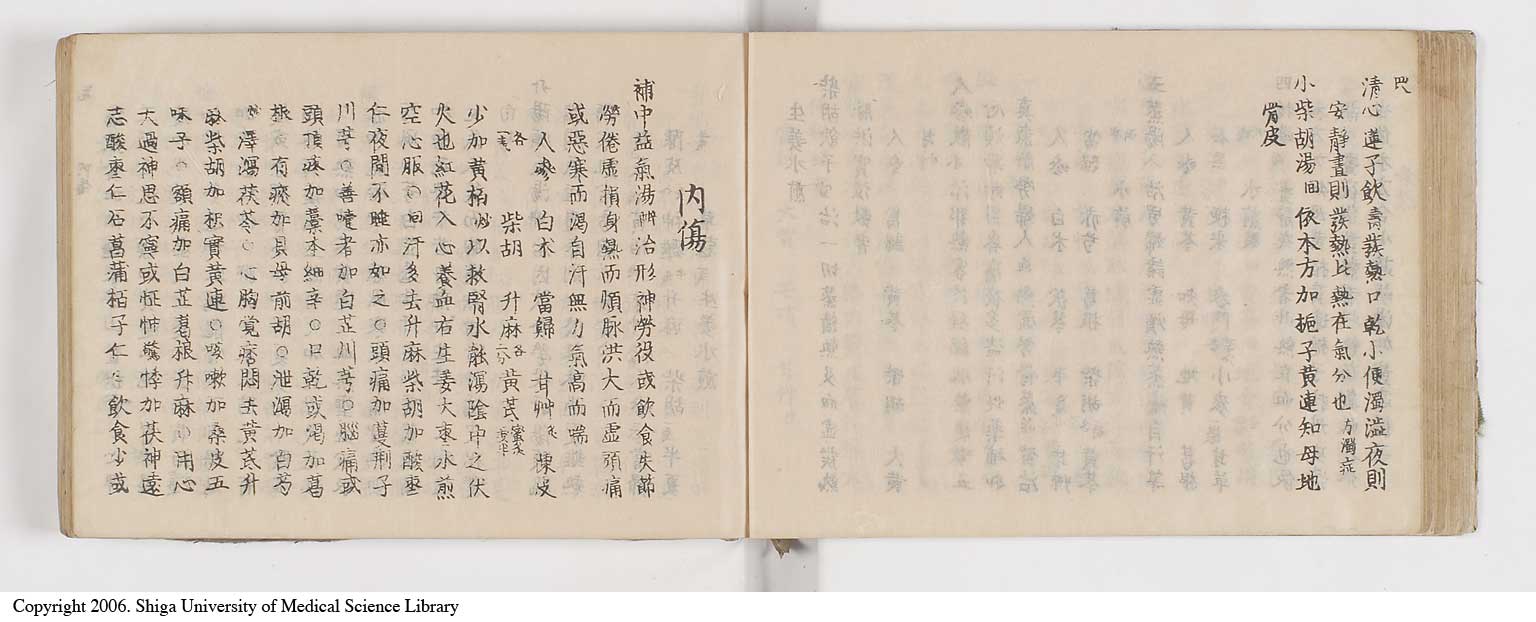 清心蓮子飲 壽 發熱口乾小便濁溢夜則
安静晝則發熱此熱在氣分也 方濁症
小柴胡湯 回 依本方加梔子黄連知母地
骨皮
内傷
補中益氣湯 辨 治形神勞役或飲食失節
勞倦虚損身熱而煩脉洪大而虚頭痛
或惡寒而渴自汗無力氣高而喘
人參 白朮 當歸 甘艸 陳皮
柴胡 升麻 各 黄芪 蜜炙
少加黄栢 以救腎水能瀉陰中之伏
火也紅花入心養血右生姜大棗水煎
空心服○回汗多去升麻柴胡加酸棗
仁夜間不睡亦如之○頭痛加蔓荆子
川芎○善嚏者加白芷川芎○腦痛或
頭頂疼加藁本細辛○口乾或渴加葛
根○有痰加貝母前胡○泄瀉加白芍
澤瀉茯苓○心胸覚痞悶去黄芪升
麻柴胡加枳實黄連○咳嗽加桑皮五
味子○額痛加白芷葛根升麻○用心
大過神思不寧或怔忡驚悸加茯神遠
志酸棗仁石菖蒲栢子仁○飲食少或
Copyright 2006. Shiga University of Medical Science Library